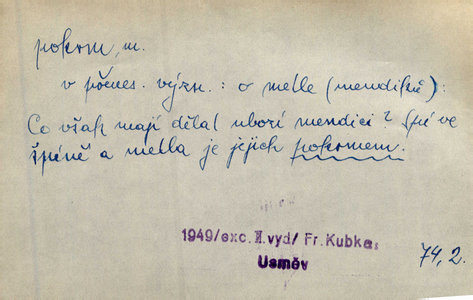 pokrm, m.
v přenes. význ.: o metle (mendíků):
Co však mají dělat ubozí mendíci? Spí ve
špíně a metla je jejich pokrmem.
1949/exc. II. vyd/ Fr. Kubka:
Úsměv
74, 2.